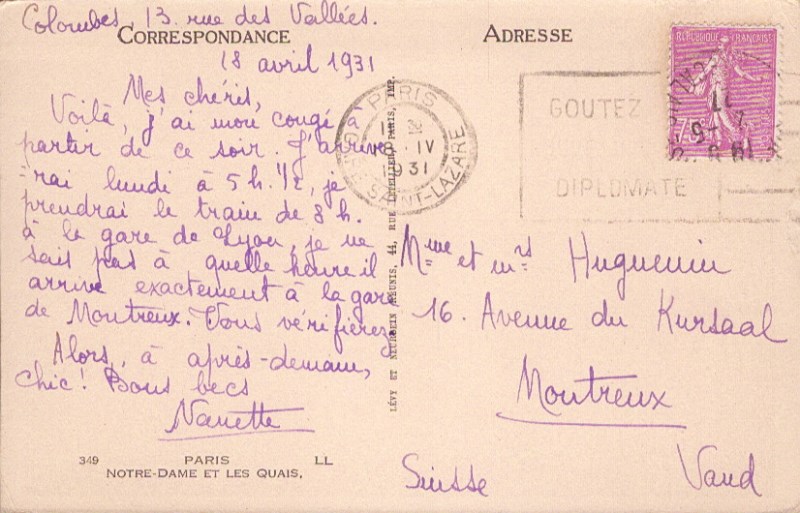 Colombes, 13. rue des Vallées.
CORRESPONDANCE
18 avril 1931
Mes chéris,
Voilà, j'ai mon congé à
partir de ce soir. J'arrive
-rai lundi à 5 h. 1/2, je
prendrai le train de 8 h.
à la gare de Lyon, je ne
sais pas à quelle heure il
arrive exactement à la gare
de Montreux. Vous vérifierez.
Alors, à après-demain,
chic! Bons becs
Nanette
349 PARIS LL
NOTRE-DAME ET LES QUAIS,
LÉVY ET NEURDEIN RÉUNIS, 44, RUE LETELLIER, PARIS, IMP.
ADRESSE
PARIS
18 IV
1931
SAINT-LAZARE
GOUTEZ
DIPLOMATE
RÉPUBLIQUE FRANÇAISE
75
Mme et mrs Huguenin
16. Avenue du Kursaal
Montreux
Suisse Vaud